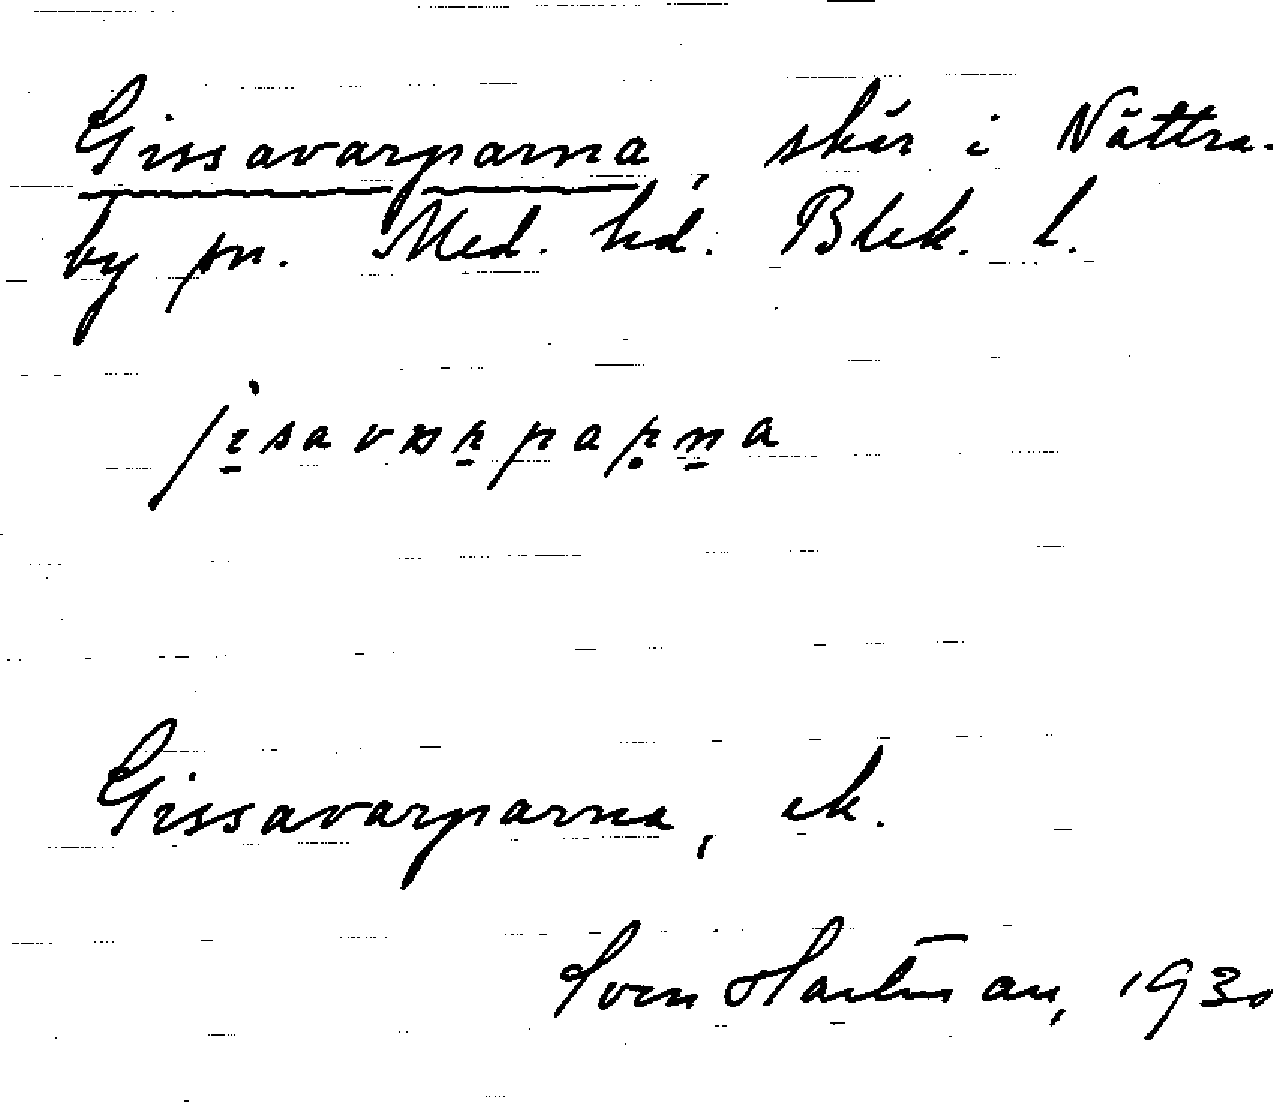 Gissavarparna, skär i Nättra-
by sn. Med. hd. Blek. l.
Gissavarparna, ek.
Sven Hartman, 1930